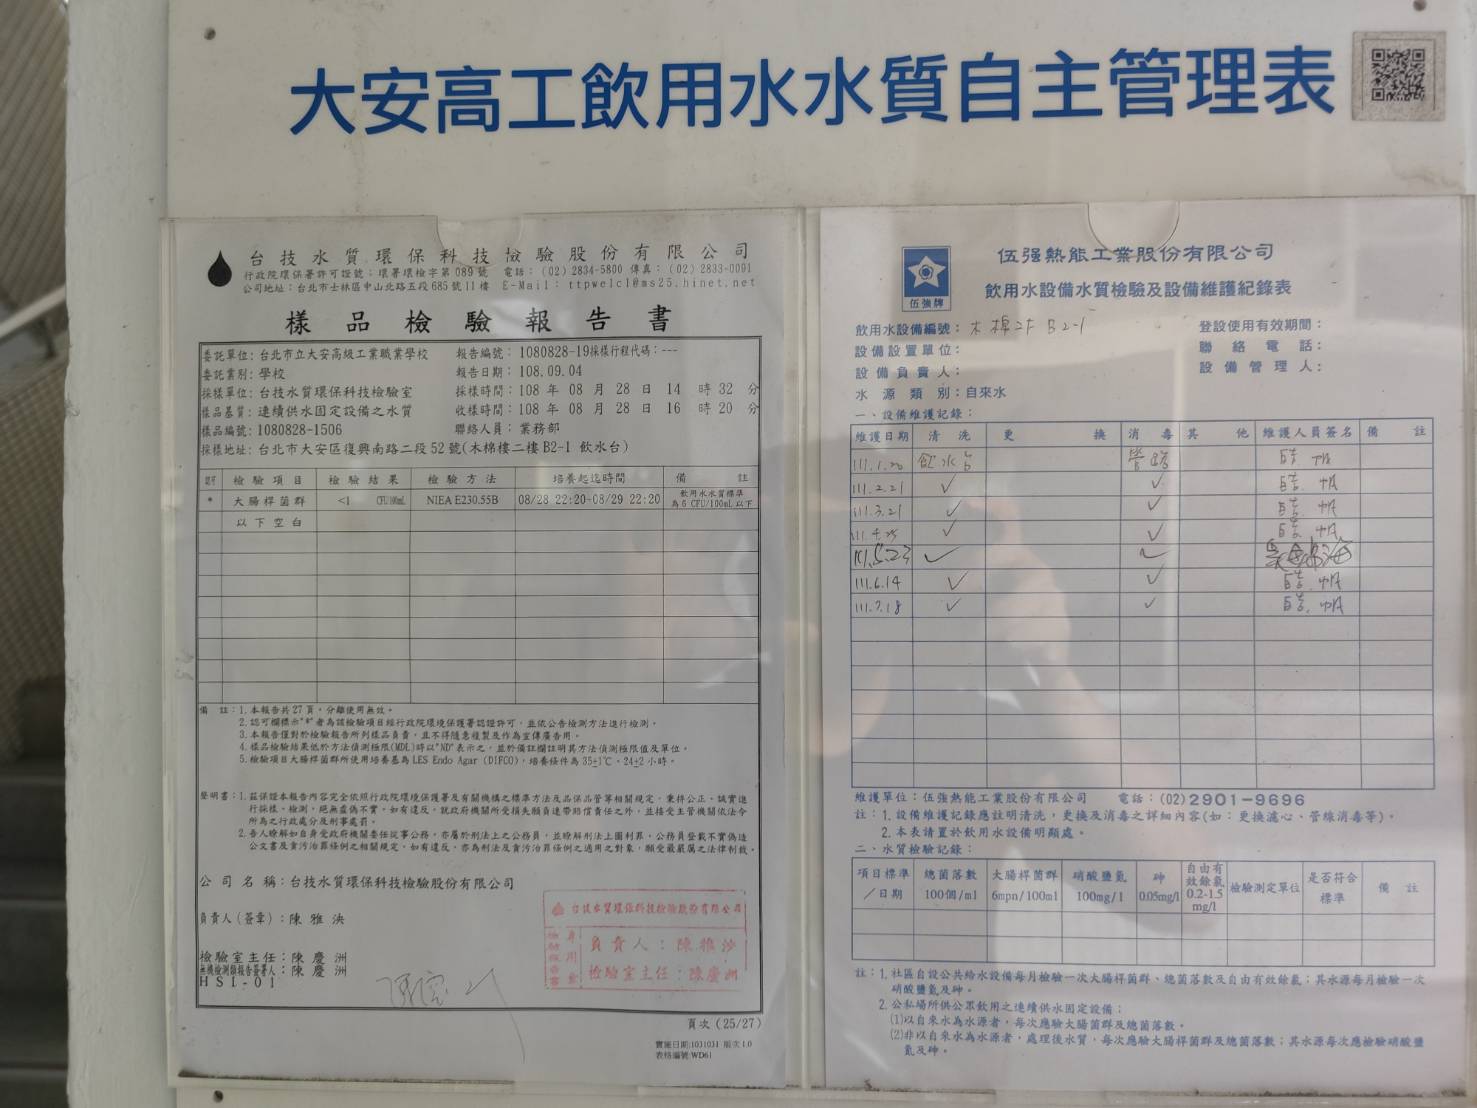 大安高工飲用水水質自主管理表
台技水質環保科技檢驗股份有限公司
行政院環保署許可證號：環署環檢字第089號 電話：(02) 2834-5800 傳真：(02) 2833-0091
公司地址：台北市士林區中山北路五段685號11樓 E-Mail：ttpwelcl@ms25.hinet.net
樣品檢驗報告書
委託單位：台北市立大安高級工業職業學校 報告編號：1080828-19採樣行程代碼：---
委託業別：學校 報告日期：108.09.04
採樣單位：台技水質環保科技檢驗室 採樣時間：108 年 08 月 28 日 14 時 32 分
樣品基質：連續供水固定設備之水質 收樣時間：108 年 08 月 28 日 16 時 20 分
樣品編號：1080828-1506 聯絡人員：業務部
採樣地址：台北市大安區復興南路二段52號(木棉樓二樓B2-1 飲水台)
檢驗項目 檢驗結果 檢驗方法 培養起迄時間 備註
* 大腸桿菌群 <1 CFU/100mL NIEA E230.55B 08/28 22:20-08/29 22:20 飲用水水質標準
為6 CFU/100mL以下
以下空白
備 註：1.本報告共27頁，分離使用無效。
2.認可欄標示"*"者為該檢驗項目經行政院環境保護署認證許可，並依公告檢測方法進行檢測。
3.本報告僅對於檢驗報告所列樣品負責，且不得隨意複製及作為宣傳廣告用。
4.樣品檢驗結果低於方法偵測極限(MDL)時以"ND"表示之，並於備註欄註明其方法偵測極限值及單位。
5.檢驗項目大腸桿菌群所使用培養基為LES Endo Agar (DIFCO)，培養條件為35±1℃，24±2小時。
聲明書：1.茲保證本報告內容完全依照行政院環境保護署及有關機構之標準方法及品保品管等相關規定，秉持公正、誠實進
行採樣、檢測，絕無虛偽不實，如有違反，就政府機關所受損失願負連帶賠償責任之外，並接受主管機關依法令
所為之行政處分及刑事處罰。
2.吾人瞭解如自身受政府機關委任從事公務，亦屬於刑法上之公務員，並瞭解刑法上圖利罪、公務員登載不實偽造
公文書及貪污治罪條例之相關規定，如有違反，亦為刑法及貪污治罪條例之適用之對象，願受最嚴厲之法律制裁。
公司名稱：台技水質環保科技檢驗股份有限公司
負責人(簽章)：陳雅
檢驗室主任：陳慶洲
無機檢測類報告簽署人：陳慶洲
HSI-01
台技水質環保科技檢驗股份有限公司
檢驗報告專用章
負責人：陳雅
檢驗室主任：陳慶洲
頁次 (25/27)
實施日期:1031031 版次1.0
表格編號:WD61
伍強牌
伍强熱能工業股份有限公司
飲用水設備水質檢驗及設備維護紀錄表
飲用水設備編號：木棉2F B2-1 登設使用有效期間：
設備設置單位： 聯絡電話：
設備負責人： 設備管理人：
水源類別：自來水
一、設備維護記錄：
維護日期 清洗 更換 消毒 其他 維護人員簽名 備註
111.1.20 飲水台 管路
111.2.21 ✓ ✓
111.3.21 ✓ ✓
111.4.25 ✓ ✓
111.5.23 ✓ ✓
111.6.14 ✓ ✓
111.7.18 ✓ ✓
維護單位：伍强熱能工業股份有限公司 電話：(02)2901-9696
註：1.設備維護記錄應註明清洗，更換及消毒之詳細內容(如：更換濾心、管線消毒等)。
2.本表請置於飲用水設備明顯處。
二、水質檢驗記錄：
項目標準／日期 總菌落數100個/ml 大腸桿菌群6mpn/100ml 硝酸鹽氮100mg/l 砷0.05mg/l 自由有效餘氯0.2-1.5mg/l 檢驗測定單位 是否符合標準 備註
註：1.社區自設公共給水設備每月檢驗一次大腸桿菌群、總菌落數及自由有效餘氯；其水源每月檢驗一次
硝酸鹽氮及砷。
2.公私場所供公眾飲用之連續供水固定設備：
(1)以自來水為水源者，每次應驗大腸菌群及總菌落數。
(2)非以自來水為水源者，處理後水質，每次應驗大腸桿菌群及總菌落數；其水源每次應檢驗硝酸鹽
氮及砷。